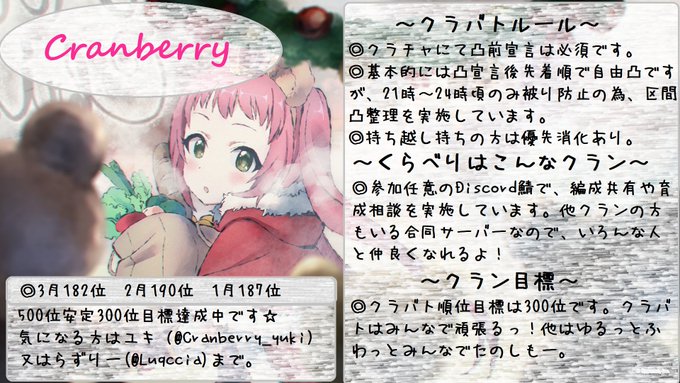 Cranberry
◎3月182位 2月190位 1月187位
500位安定300位目標達成中です☆
気になる方はユキ (@Cranberry_yuki)
又はらずりー(@Luqccia)まで。
～クラバトルール～
◎クラチャにて凸前宣言は必須です。
◎基本的には凸宣言後先着順で自由凸です
が、21時～24時頃のみ被り防止の為、区間
凸整理を実施しています。
◎持ち越し持ちの方は優先消化あり。
～くらべりはこんなクラン～
◎参加任意のDiscord鯖で、編成共有や育
成相談を実施しています。他クランの方
もいる合同サーバーなので、いろんな人
と仲良くなれるよ！
～クラン目標～
◎クラバト順位目標は300位です。クラバ
トはみんなで頑張るっ！他はゆるっとふ
わっとみんなでたのしもー。